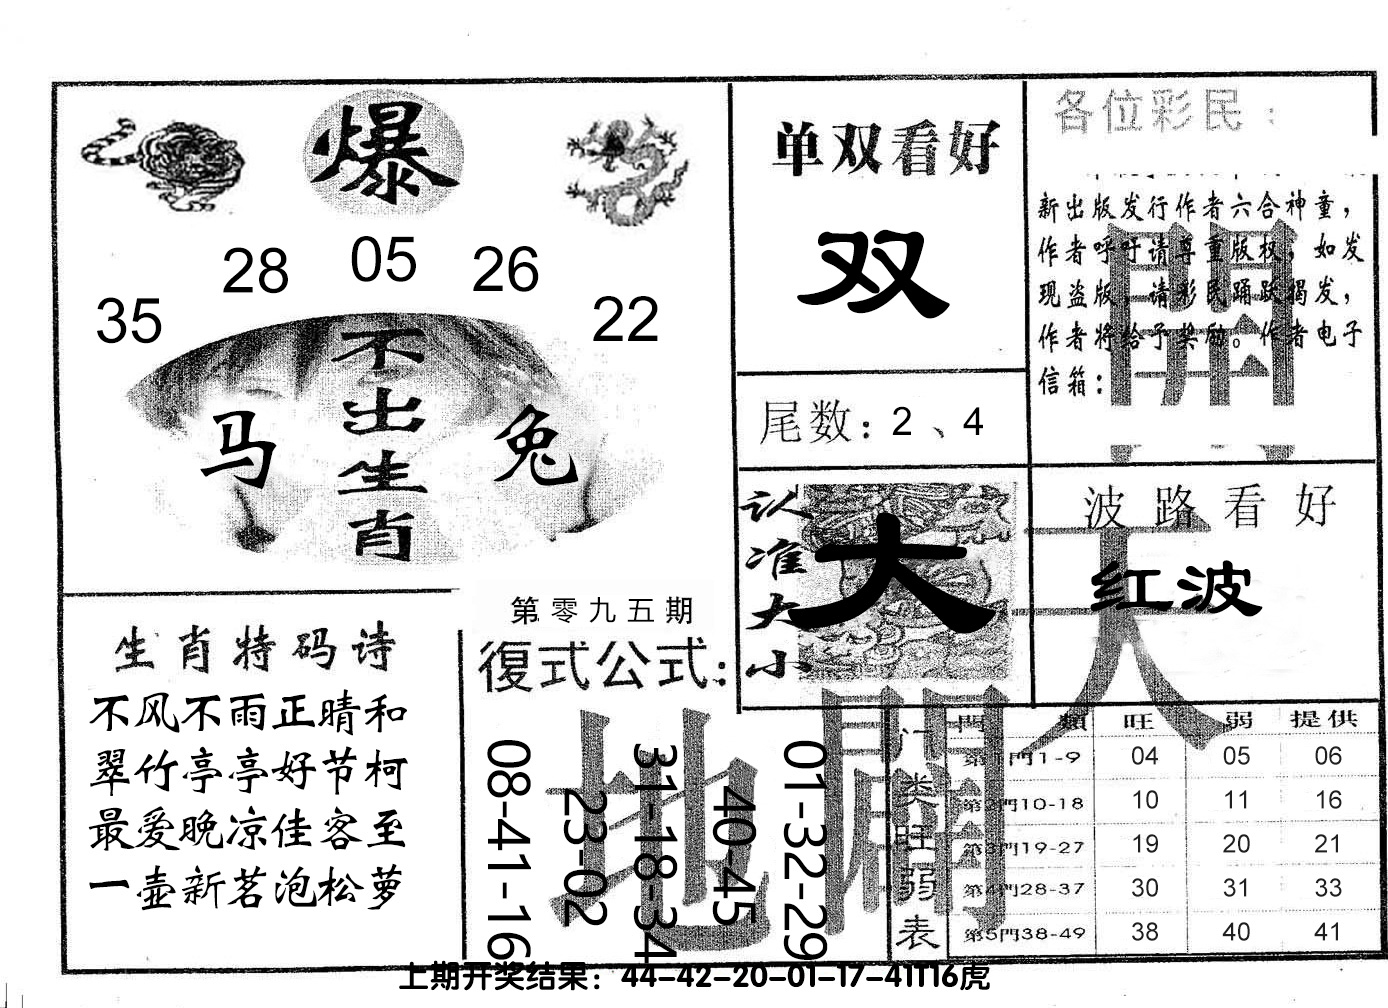 爆
35 28 05 26 22
不出生肖
马 兔
单双看好
双
尾数：2、4
各位彩民：
新出版发行作者六合神童，
作者呼吁请尊重版权，如发
现盗版，请彩民踊跃揭发，
作者将给予奖励。作者电子
信箱：
認准大小
大
波路看好
红波
天
開
地
開
生肖特码诗
不风不雨正晴和
翠竹亭亭好节柯
最爱晚凉佳客至
一壶新茗泡松萝
第零九五期
復式公式：
08-41-16
23-02
31-18-34
40-45
01-32-29
门类旺弱表
門類 旺 弱 提供
第1門1-9 04 05 06
第2門10-18 10 11 16
第3門19-27 19 20 21
第4門28-37 30 31 33
第5門38-49 38 40 41
上期开奖结果：44-42-20-01-17-41T16虎